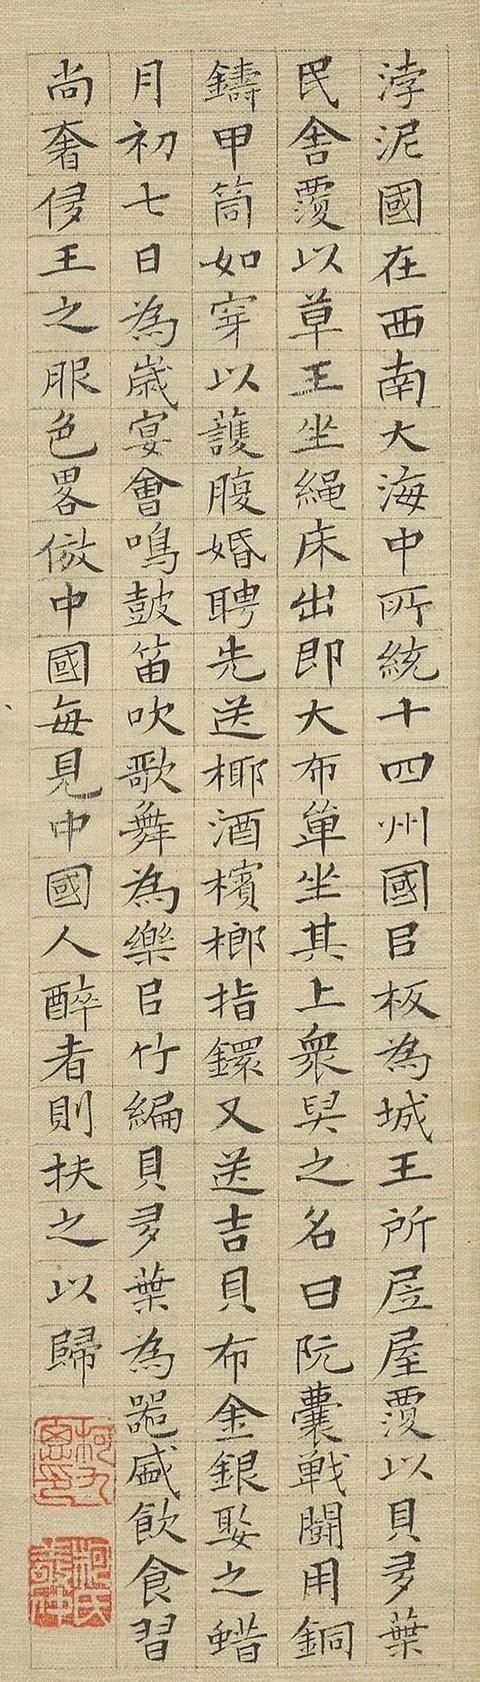 渟泥國在西南大海中所統十四州國㠯板為城王所居屋覆以貝多葉
民舍覆以草王坐繩床出即大布單坐其上衆舁之名曰阮囊戰鬪用銅
鑄甲筒如穿以護腹婚聘先送椰酒檳榔指鐶又送吉貝布金銀娶之蜡
月初七日為歲宴會鳴鼓笛吹歌舞為樂㠯竹編貝多葉為器盛飲食習
尚奢侈王之服色畧倣中國每見中國人醉者則扶之以歸
柯九思印